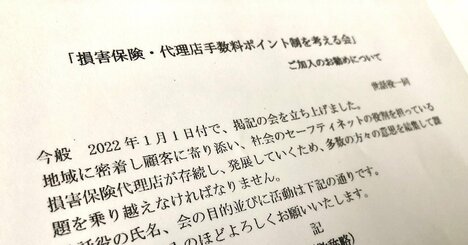 「損害保険・代理店手数料ポイント制を考える会」
ご加入のお勧めについて
世話役一同
今般 2022年1月1日付で、掲記の会を立ち上げました。
地域に密着し顧客に寄り添い、社会のセーフティネットの役割を担っている
損害保険代理店が存続し、発展していくため、多数の方々の意思を結集して課
題を乗り越えなければなりません。
話役の氏名、会の目的並びに活動は下記の通りです。
のほどよろしくお願いいたします。
記